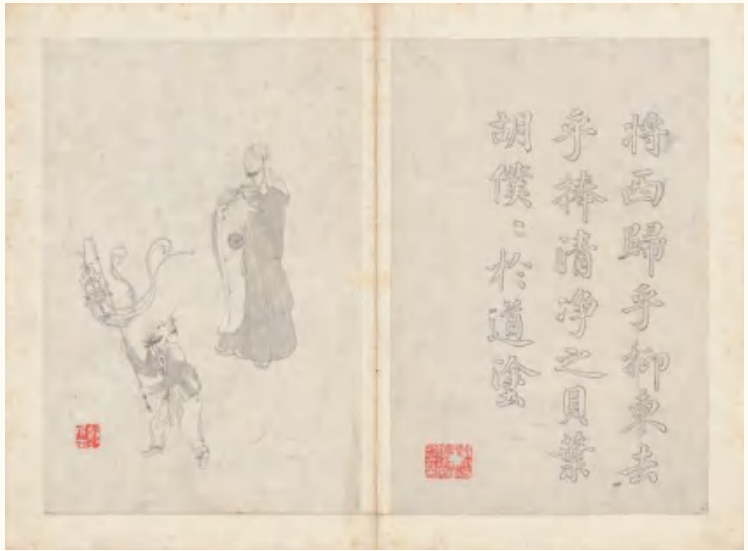 將西歸乎抑東去
乎捧清淨之貝葉
胡僕〻於道塗